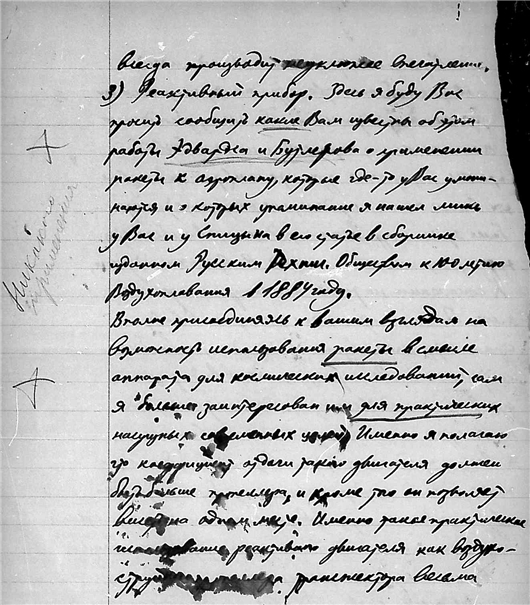 всегда производит неуклюжее впечатление.
3) Реактивный прибор. Здесь я буду Вас
просить сообщить какие Вам известны об этом
работы Эдвардса и Бутлерова о применении
ракеты к аэроплану, которые где-то у Вас упоми-
наются и о которых упоминание я нашел лишь
у Вас и у Спицына в его статье в сборнике
изданном Русским Техни. Обществом к 100-летию
Воздухоплавания в 1884 году.
Вполне присоединяясь к вашим взглядам на
возможность использования ракеты в смысле
аппарата для космических исследований, сам
я больше заинтересован им для практических
насущных современных целей. Именно я полагаю
что коэффициент отдачи такого двигателя должен
быть больше пропеллера, и кроме того он позволяет
висеть на одном месте. Именно такое практическое
использование реактивного двигателя как воздухо-
струйного транспортера весьма
Никакого
применения